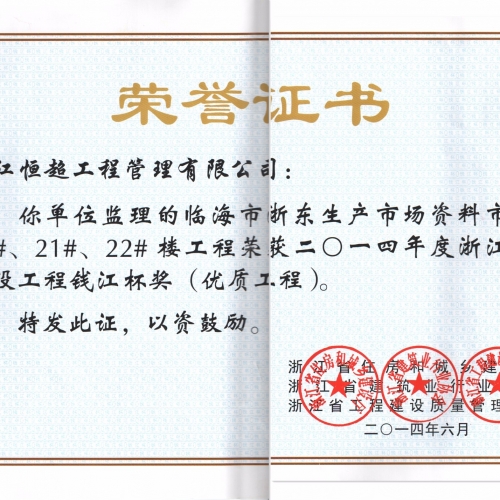 荣誉证书
江恒超工程管理有限公司：
你单位监理的临海市浙东生产市场资料市
#、21#、22# 楼工程荣获二〇一四年度浙江
设工程钱江杯奖（优质工程）。
特发此证，以资鼓励。
浙江省住房和城乡建
浙江省建筑业行业
浙江省工程建设质量管理
二〇一四年六月